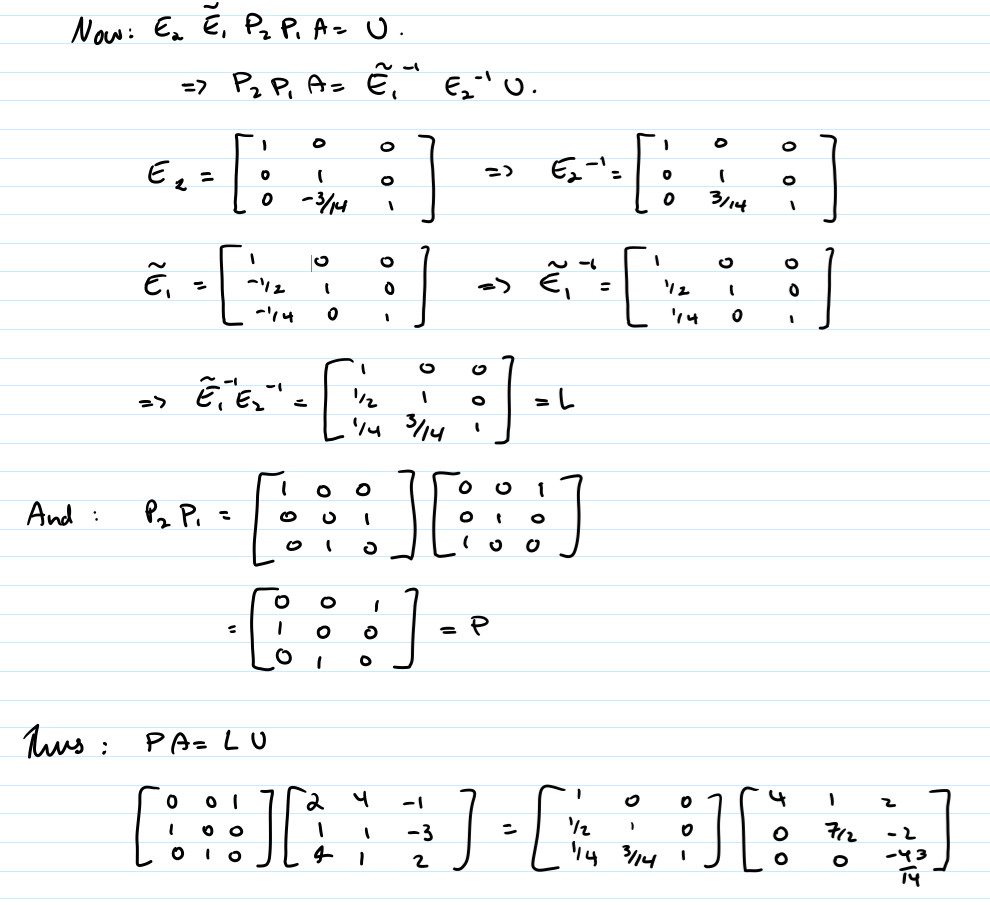 Now: E₂ Ẽ₁ P₂ P₁ A = U.
=> P₂ P₁ A = Ẽ₁⁻¹ E₂⁻¹ U.
E₂ = [1 0 0; 0 1 0; 0 -3/14 1] => E₂⁻¹ = [1 0 0; 0 1 0; 0 3/14 1]
Ẽ₁ = [1 0 0; -1/2 1 0; -1/4 0 1] => Ẽ₁⁻¹ = [1 0 0; 1/2 1 0; 1/4 0 1]
=> Ẽ₁⁻¹ E₂⁻¹ = [1 0 0; 1/2 1 0; 1/4 3/14 1] = L
And : P₂ P₁ = [1 0 0; 0 0 1; 0 1 0] [0 0 1; 0 1 0; 1 0 0]
= [0 0 1; 1 0 0; 0 1 0] = P
Thus : PA = L U
[0 0 1; 1 0 0; 0 1 0] [2 4 -1; 1 1 -3; 4 1 2] = [1 0 0; 1/2 1 0; 1/4 3/14 1] [4 1 2; 0 7/2 -2; 0 0 -43/14]